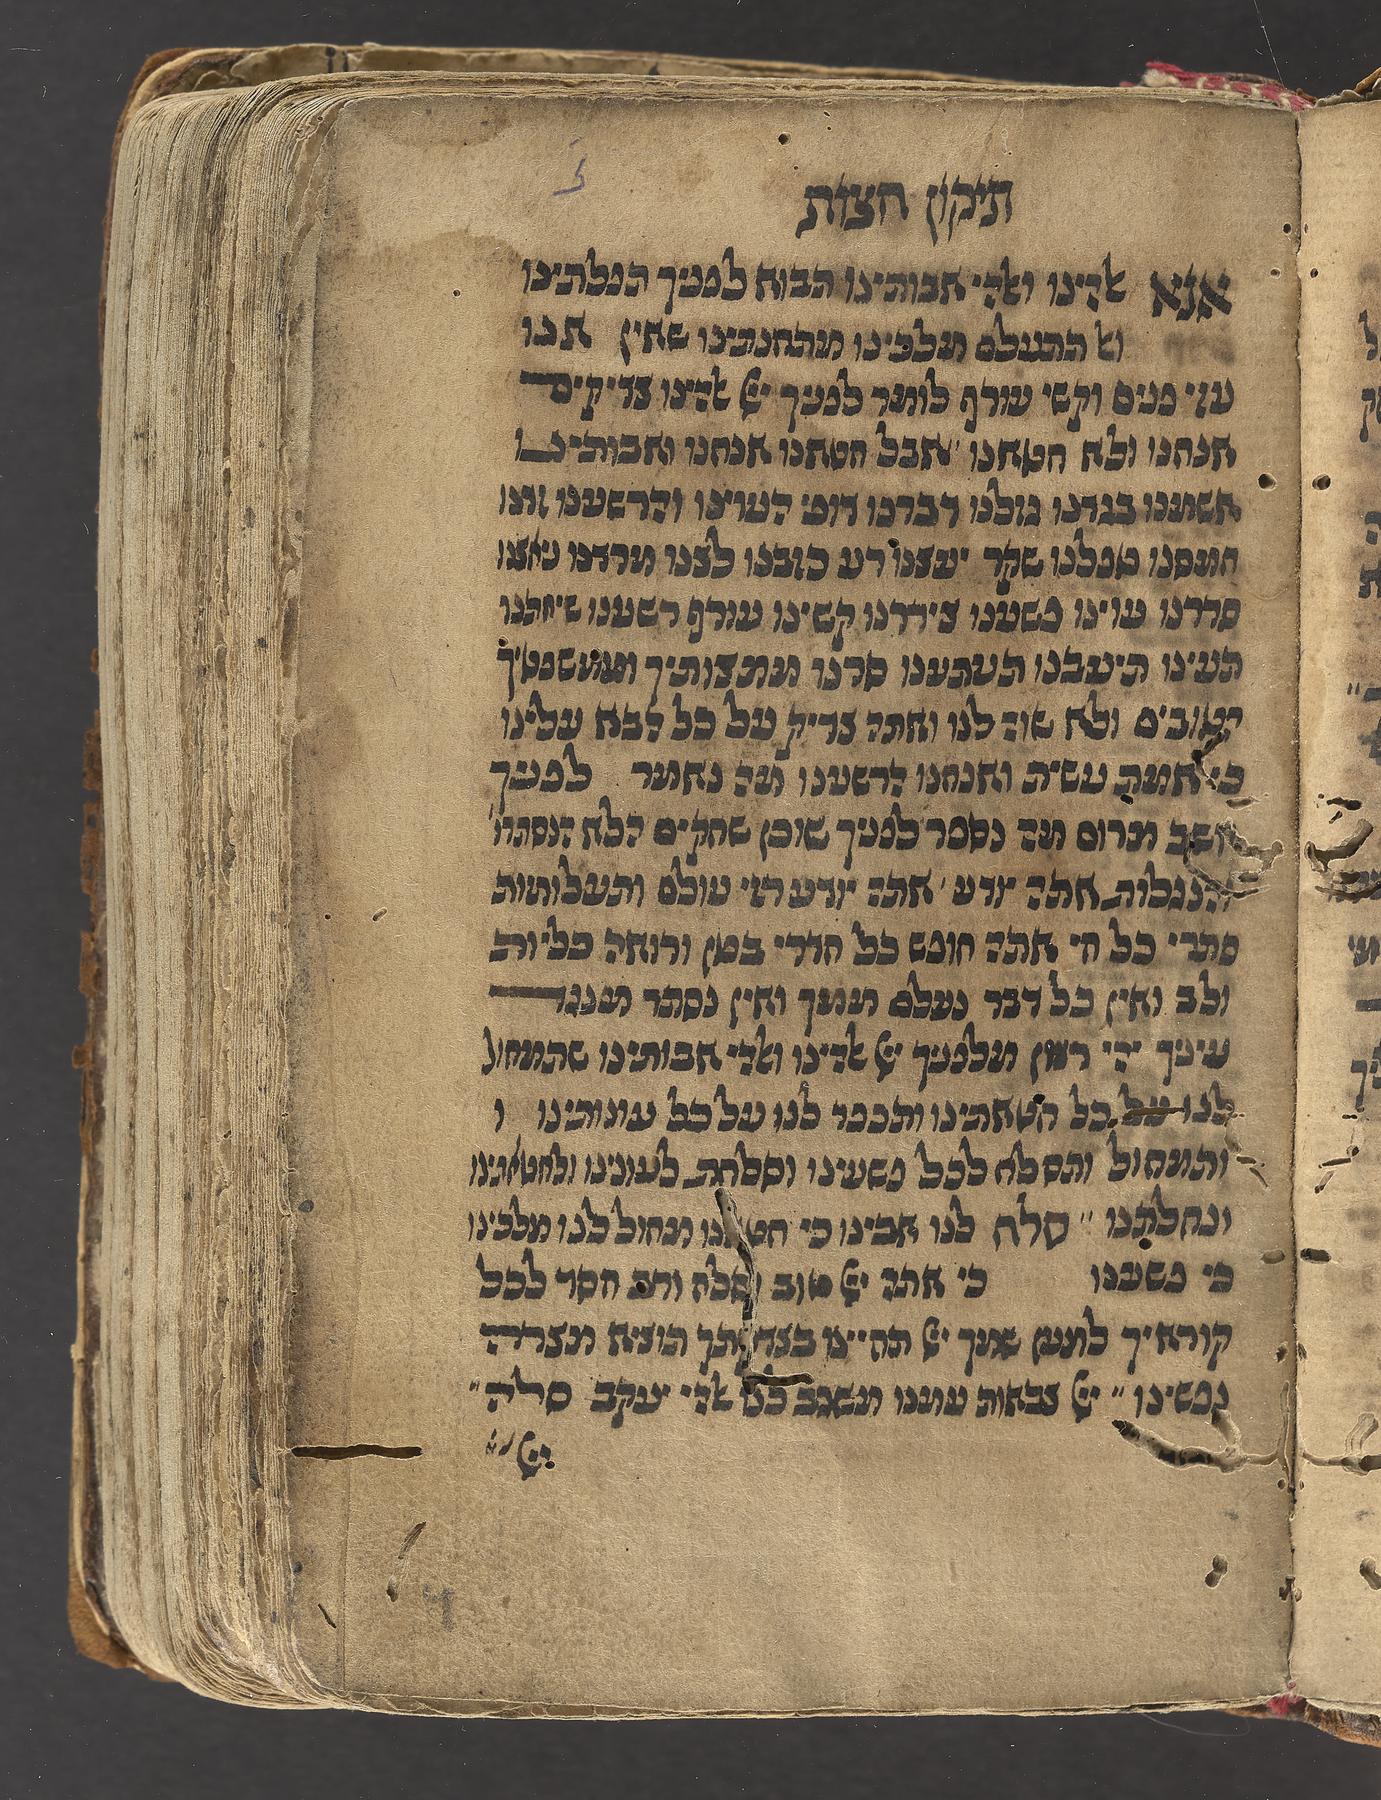 תיקון חצות
אנא אלהינו ואלהי אבותינו תבוא לפניך תפלתינו
ואל תתעלם מלכינו מתחנתינו שאין אנו
עזי פנים וקשי עורף לומר לפניך יי אלהינו צדיקים
אנחנו ולא חטאנו אבל חטאנו אנחנו ואבותינו
אשמנו בגדנו גזלנו דברנו דופי העוינו והרשענו זדנו
חמסנו טפלנו שקר יעצנו רע כזבנו לצנו מרדנו ניאצנו
סררנו עוינו פשענו צררנו קשינו עורף רשענו שיחתנו
תעינו תיעבנו תעתענו סרנו ממצותיך וממשפטיך
הטובים ולא שוה לנו ואתה צדיק על כל הבא עלינו
כי אמת עשית ואנחנו הרשענו מה נאמר לפניך
יושב מרום מה נספר לפניך שוכן שחקים הלא הנסתרו'
והנגלות אתה יודע אתה יודע רזי עולם ותעלומות
סתרי כל חי אתה חופש כל חדרי בטן ורואה כליות
ולב ואין כל דבר נעלם ממך ואין נסתר מנגד
עיניך יהי רצון מלפניך יי אלהינו ואלהי אבותינו שתמחול
לנו על כל חטאתינו ותכפר לנו על כל עונותינו ו
ותמחול ותסלח לכל פשעינו וסלחת לעונינו ולחטאתינו
ונחלתנו סלח לנו אבינו כי חטאנו מחול לנו מלכינו
כי פשענו כי אתה יי טוב וסלח ורב חסד לכל
קוראיך למען שמך יי תחיינו בצדקתך תוציא מצרה
נפשינו יי צבאות עמנו משגב לנו אלהי יעקב סלה
יי